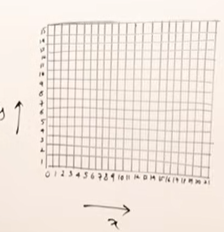 15
14
13
12
11
10
9
8
7
6
5
4
3
2
1
y
0 1 2 3 4 5 6 7 8 9 10 11 12 13 14 15 16 17 18 19 20 21
x